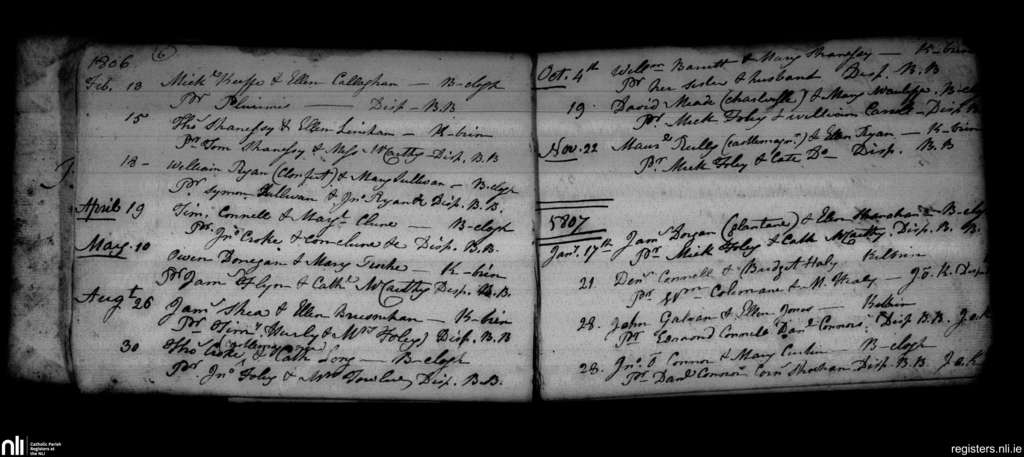 1806
6
Feb. 13 Mich.l Keeffe & Ellen Callaghan — B-clogh
Pr. Plurimis — Disp. B.B
15 Tho.s Shanessy & Ellen Linehan — K-brin
Pr. Tom Shanessy & Mrs McCarthy Disp. B.B
18 — William Ryan (Clonfert) & Mary Sullivan — B-clogh
Pr. Symon Sullivan & Jno. Ryan & Disp. B.B.
April 19 Tim. Connell & Margt. Clune — B-clogh
Pr. Jno. Croke & Disp. B.B.
May. 10 Owen Donegan & Mary — K-brin
Pr. Jam.s Flyn & Cath. McCarthy Disp. B.B.
Augt. 26 Jam.s Shea & Ellen — K-brin
Pr. Tim.y Hurly & Mrs Foley) Disp. B.B
30 Tho.s Croke & Cath. Long — B-clogh
Pr. Jno. Foley & Mrs Disp. B.B.
Oct. 4th Willm. Barrett & Mary Shanessy — K-brin
Pr. her sister & husband Disp. B.B
19. David Meade & Mary McAuliffe. B-clogh
Pr. Mick Foley & William Disp. B.B
Nov. 22 Maur. Reilly (castlemagr.) & Ellen Ryan — K-brin
Pr. Mick Foley & Cate Do — Disp. B.B
1807
Jan. 17th Jam.s Dorgan (glantane) & Ellen Shanahan — B-clogh
Pr. Mick Foley & Cath McCarthy. Disp. B. B.
21. Den.s Connell & Bridget Haly Kilbrin
Pr. Wm. Colemane & M. Healy — J.K. Disp
28. John Galvan & Ellen Jones — Kilbrin
Pr. Edmond Connell Dan.l Connor. Disp B.B. J.K
28. Jno. Connor & Mary Curtin — B-clogh
Pr. Dan.l Connor Corn.s Sheehan Disp. B.B. J.K
nli
Catholic Parish
Registers at
the NLI
registers.nli.ie